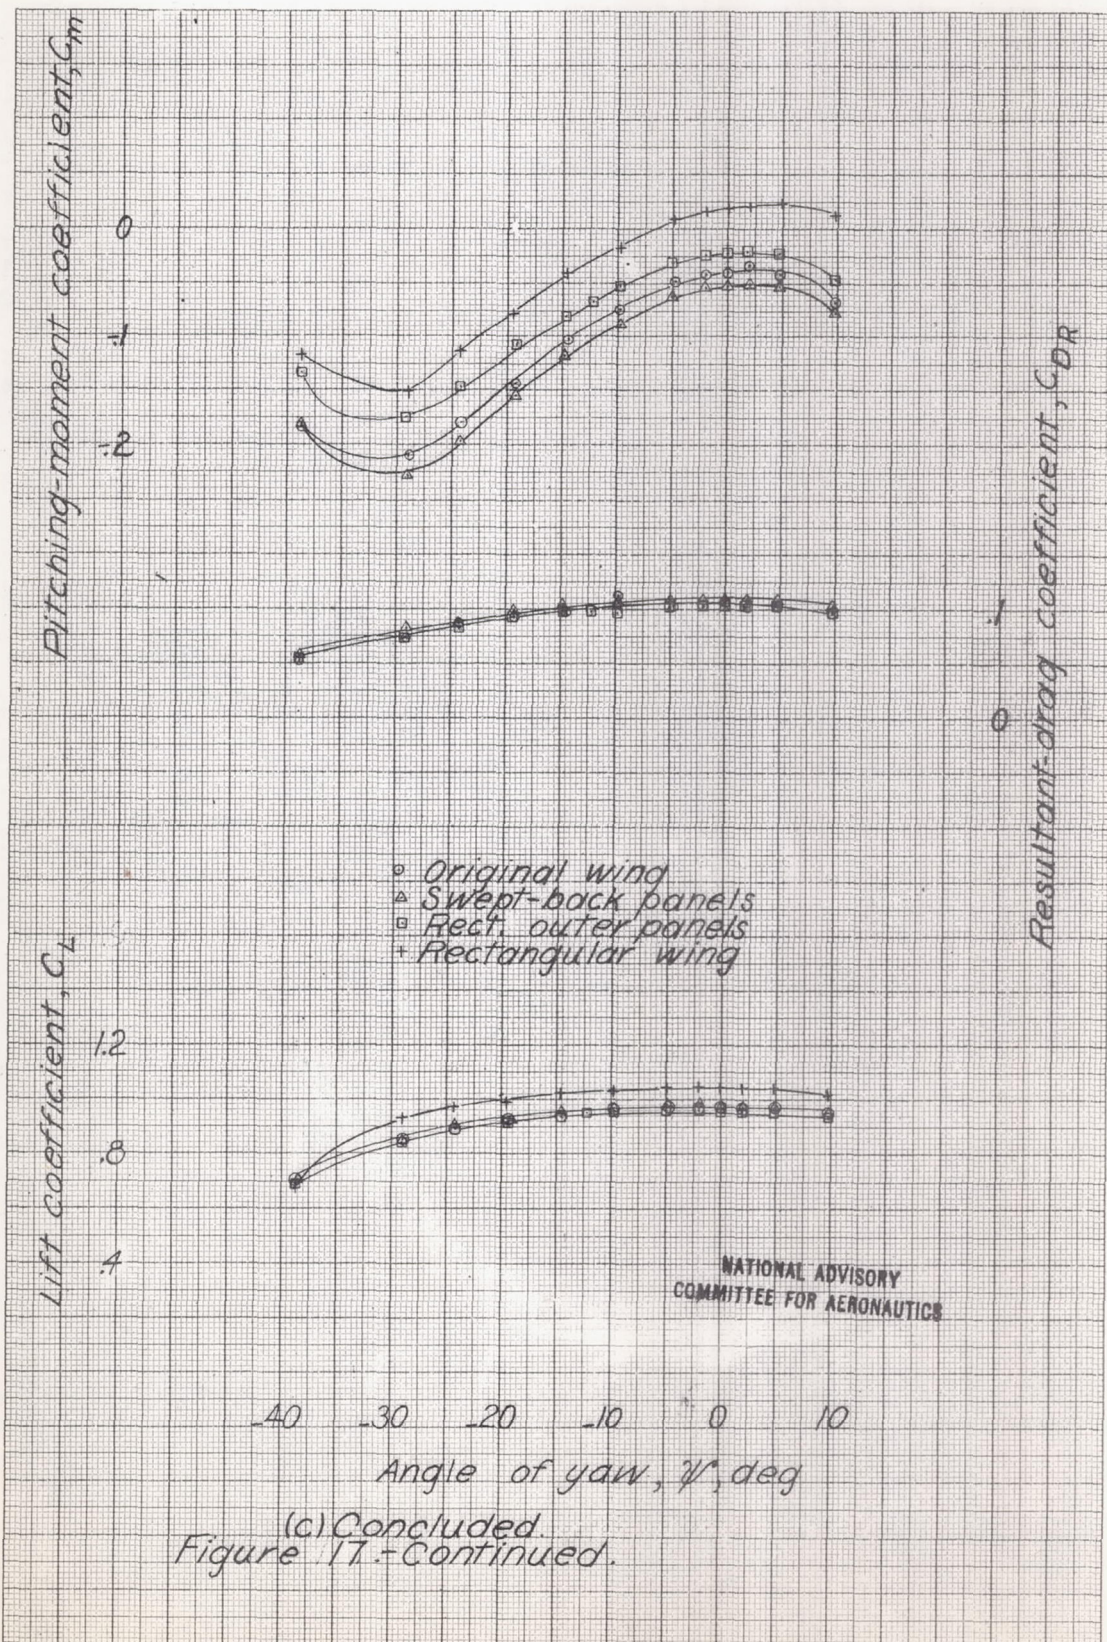 Pitching-moment coefficient, Cm
0
-.1
-.2
Resultant-drag coefficient, CDR
.1
0
Original wing
Swept-back panels
Rect. outer panels
Rectangular wing
Lift coefficient, CL
1.2
.8
.4
NATIONAL ADVISORY
COMMITTEE FOR AERONAUTICS
-40 -30 -20 -10 0 10
Angle of yaw, ψ, deg
(c) Concluded.
Figure 17.-Continued.